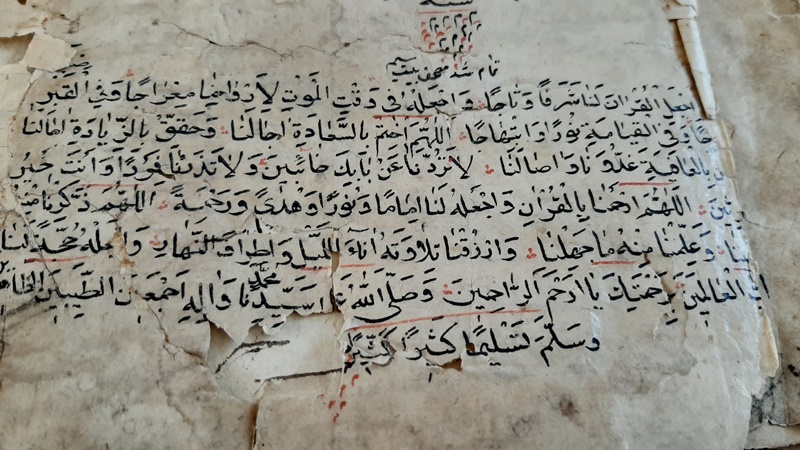 تمام شد
اجعل القرآن لنا شرفا وتاجا واجعله في وقت الموت لارواحنا معراجا وفي القبر
وفي القيامة نورا وابتهاجا اللهم اختم بالسعادة اجالنا وحقق بالزيادة امالنا
بالعافية غدونا واصالنا لا تردنا عن بابك خائبين ولا تذرنا فردا وانت خير
اللهم ارحمنا بالقرآن واجعله لنا اماما ونورا وهدى ورحمة اللهم ذكرنا منه
وعلمنا منه ما جهلنا وارزقنا تلاوته اناء الليل واطراف النهار واجعله حجة لنا
العالمين برحمتك يا ارحم الراحمين وصلى الله سيدنا محمد واله اجمعين الطيبين
وسلم تسليما كثيرا كثيرا